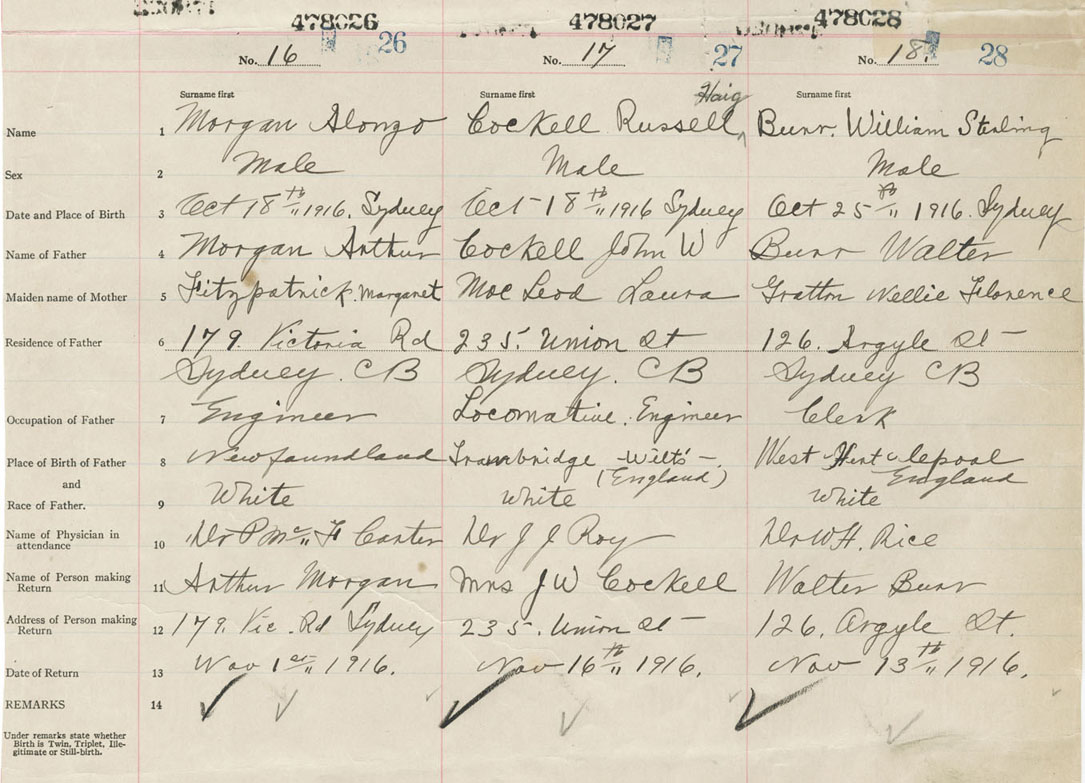 478026 478027 478028
26 27 28
No. 16 No. 17 No. 18.
Surname first Surname first Haig Surname first
Name 1 Morgan Alonzo Cockell Russell^ Burr. William Sterling
Sex 2 Male Male Male
Date and Place of Birth 3 Oct 18th 1916. Sydney Oct 18th 1916 Sydney Oct 25th 1916. Sydney
Name of Father 4 Morgan Arthur Cockell John W Burr Walter
Maiden name of Mother 5 Fitzpatrick Margaret Mac Leod Laura Gratton Nellie Florence
Residence of Father 6 179. Victoria Rd 235. Union St 126. Argyle St
Sydney. CB Sydney. CB Sydney CB
Occupation of Father 7 Engineer Locomative. Engineer Clerk
Place of Birth of Father 8 Newfoundland Trowbridge Wilts West Hartlepool
and (England) England
Race of Father. 9 White White White
Name of Physician in
attendance 10 Dr P Mc F Carter Dr J J Roy Dr W H. Rice
Name of Person making
Return 11 Arthur Morgan Mrs J W Cockell Walter Burr
Address of Person making
Return 12 179. Vic. Rd Sydney 235. Union St 126. Argyle St.
Date of Return 13 Nov 1st 1916. Nov 16th 1916. Nov 13th 1916.
REMARKS 14
Under remarks state whether
Birth is Twin, Triplet, Ille-
gitimate or Still-birth.